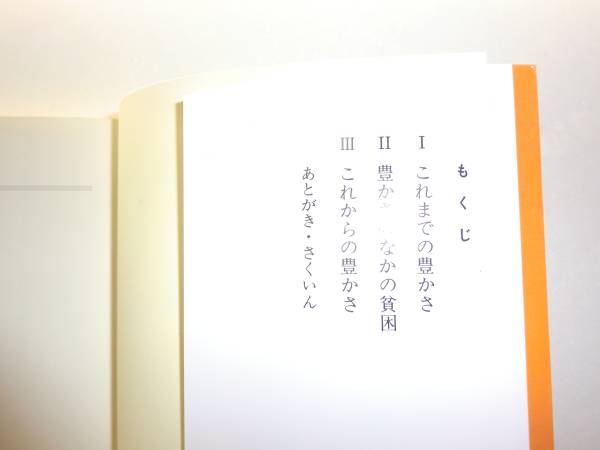 もくじ
I これまでの豊かさ
II 豊かさのなかの貧困
III これからの豊かさ
あとがき・さくいん